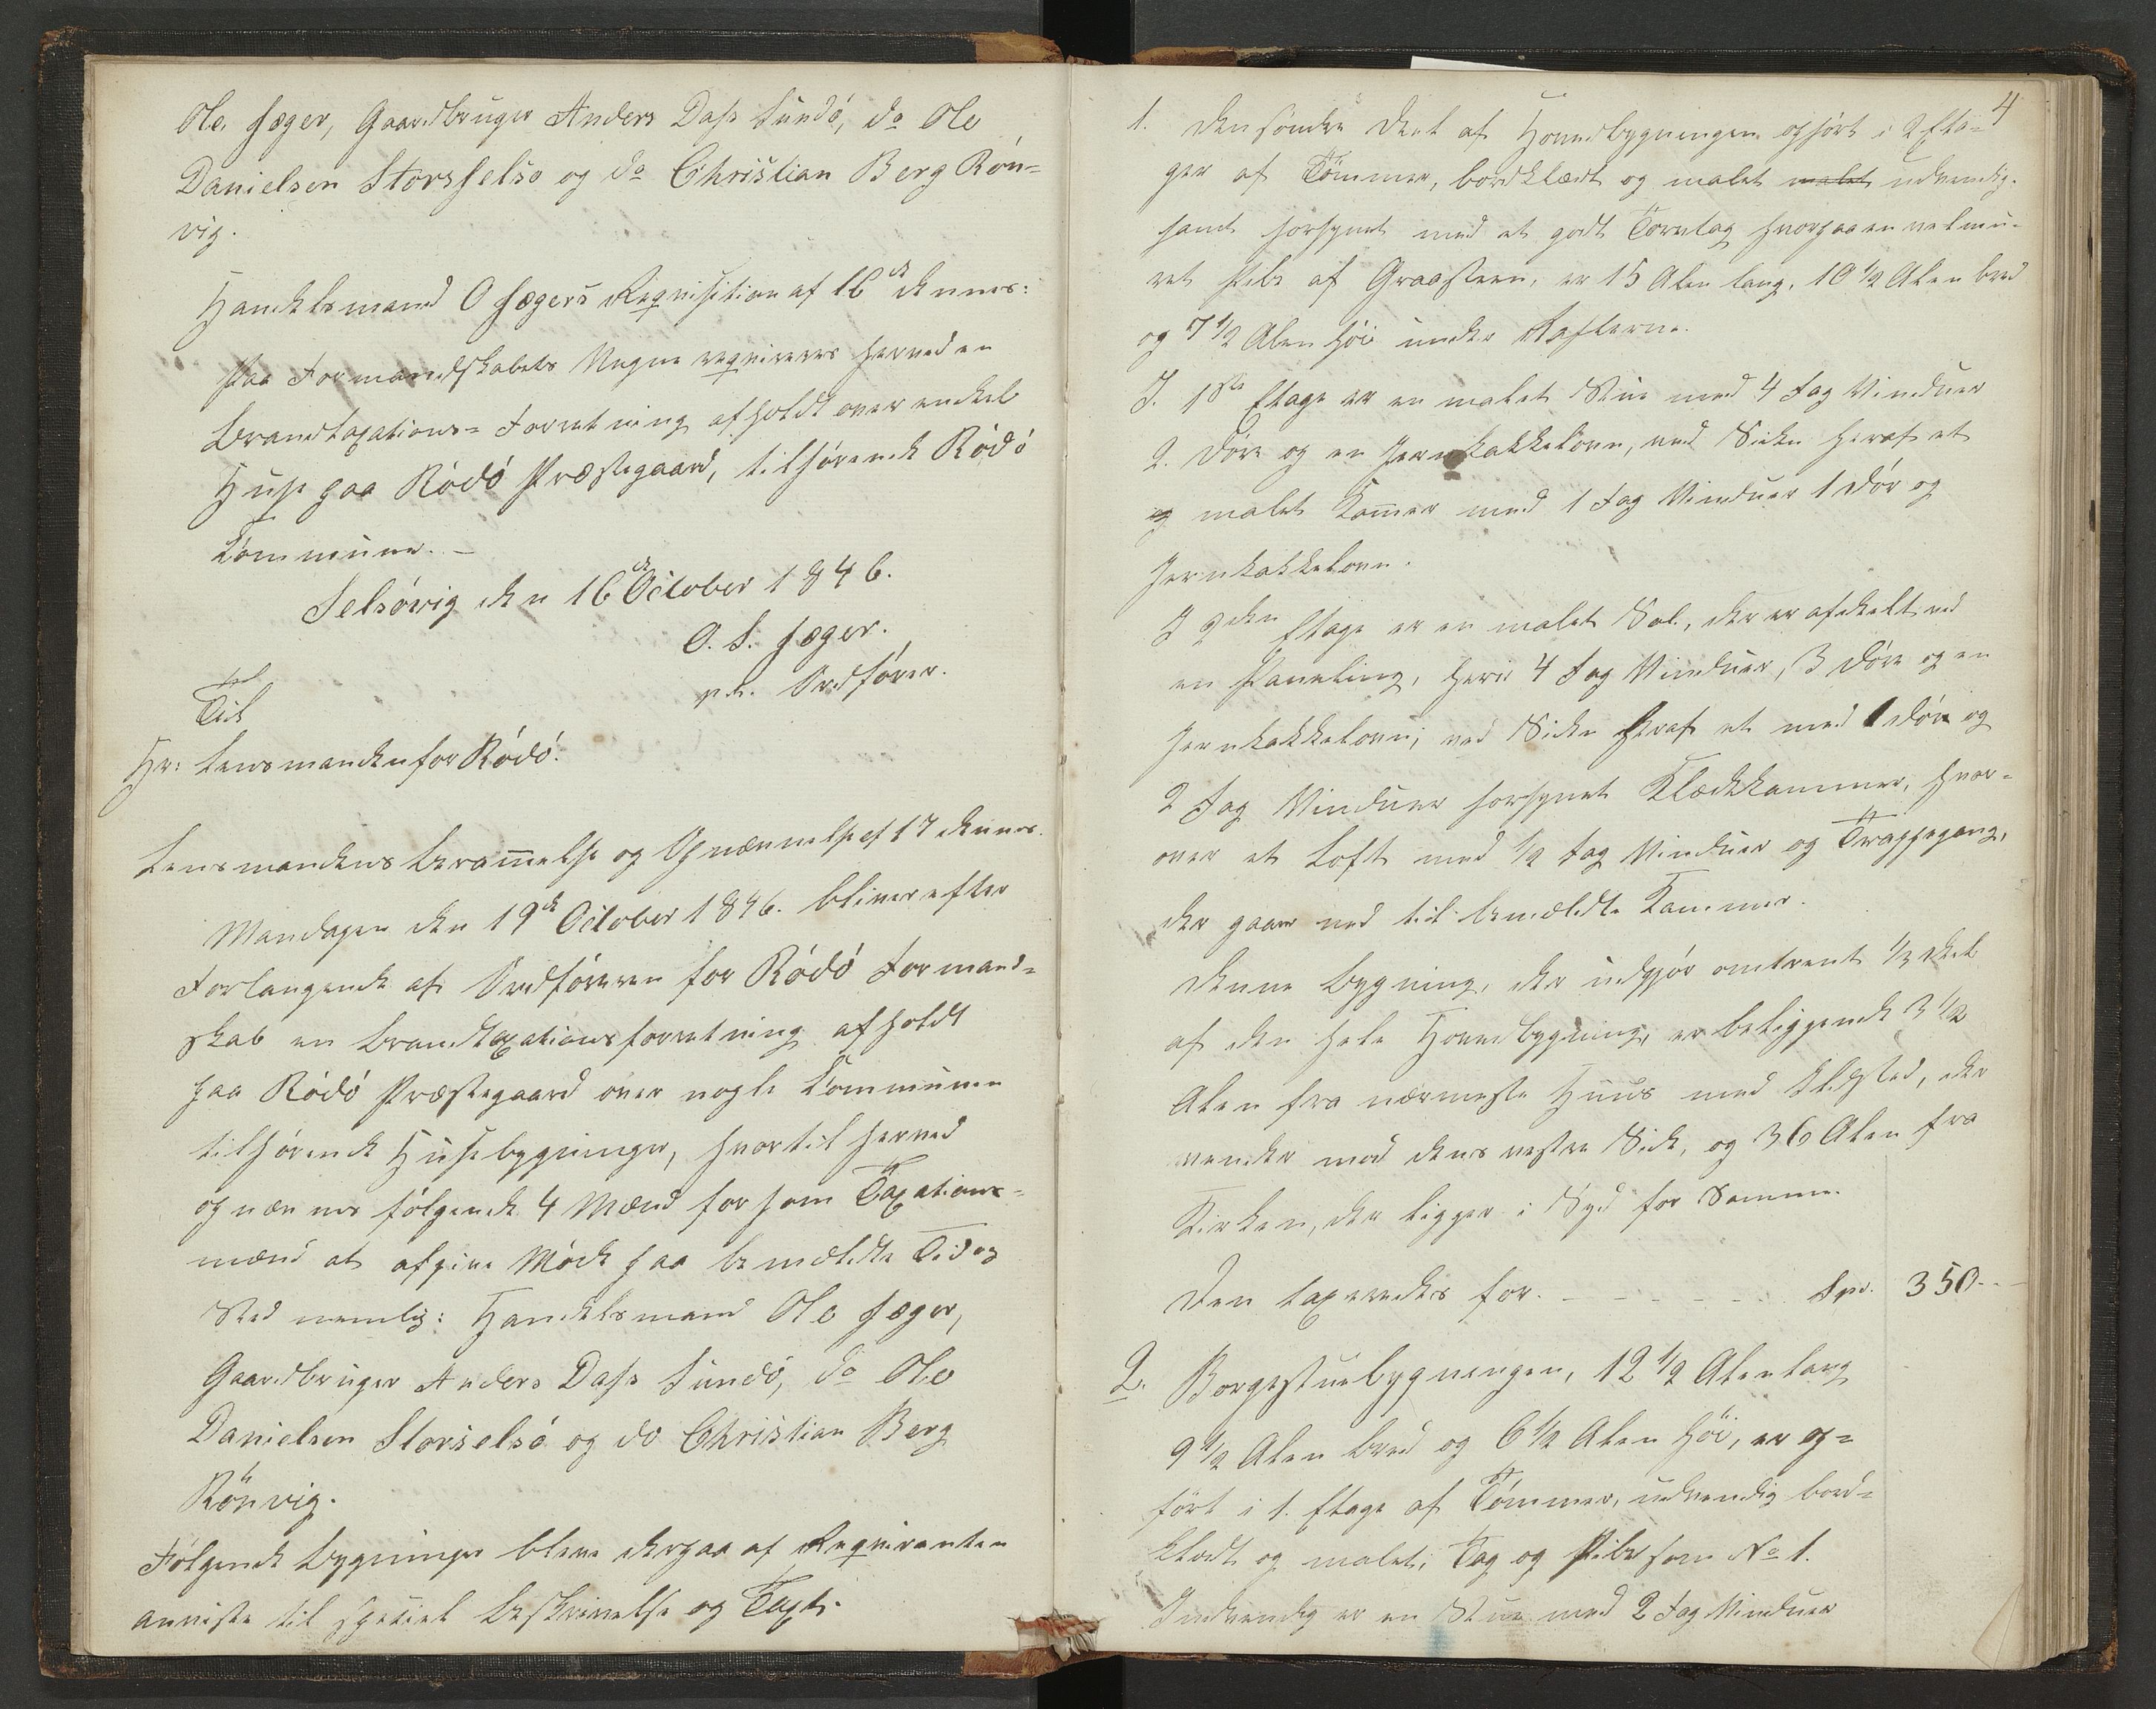 Ole Jæger, Gaardbruger Anders Dass Sundö, do Ole
Danielsen Storselsö og do Christian Berg Rön=
vig.
Handelsmand O Jægers Requisition af 16de dennes:
Paa Formandskabets Vegne requireres herved en
Brandtaxations= Forretning afholdt over endeel
Huse paa Rödö Præstegaard, tilhörende Rödö
Commune. –
Selsövig den 16de October 1846.
O. S. Jæger.
Ordförer.
Til
Hr: Lensmanden for Rödö.
Lensmandens Berammelse og Opnævnelse af 17 dennes.
Mandagen den 19de October 1846. bliver efter
Forlangende af Ordföreren for Rödö Formand=
skab en Brandtaxationsforretning afholdt
paa Rödö Præstegaard over nogle Communen
tilhörende Huusebygninger, hvortil herved
opnævnes fölgende 4 Mænd for som Taxations=
mænd at afgive Möde paa bemeldte Tid og
Sted nemlig: Handelsmand Ole Jæger,
Gaardbruger Anders Dass Sundö, do Ole
Danielsen Storselsö og do Christian Berg
Rönvig.
Fölgende Bygninger bleve derpaa af Requirenten
anviste til speciel Beskrivelse og Taxt.
4
1. Den söndre Deel af Hovedbygningen opfört i 2 Eta=
ger af Tömmer, bordklædt og malet malet udvendig.
samt forsynet med et godt Torvtag hvorpaa en velmu=
ret Pibe af Graasteen, er 15 Alen lang, 10 1/2 Alen bred
og 7 1/2 Alen höi under Rafterne.
I. 1ste Etage er en malet Stue med 4 Fag Vinduer
2. Döre og en Jernkakkelovn, ved Siden heraf et
og malet Kammer med 1 Fag Vinduer 1 Dör og
Jernkakkelovn.
I 2den Etage er en malet Sal, der er afdeelt ved
en Paneling, heri 4 Fag Vinduer, 3 Döre og en
Jernkakkelovn; ved Siden heraf et med 1 Dör og
2 Fag Vinduer forsynet Klædekammer, hvor=
over et Loft med 1/2 Fag Vinduer og Trappegang,
der gaar ned til bemeldte Kammer.
Denne Bygning, der udgjör omtrent 1/3 Deel
af den hele Hovedbygning, er beliggende 3 1/2
Alen fra nærmeste Huus med Ildsted, der
vender mod dens vestre Side, og 36 Alen fra
Kirken, der ligger i Syd for Samme.
Den taxeredes for. – – – – – – – Spd. 350 –
2. Borgestuebygningen, 12 1/2 Alen lang
9 1/2 Alen bred og 6 1/2 Alen höi, er op=
fört i 1. Etage af Tömmer, udvendig bord=
klædt og malet; Tag og Pibe som No 1.
Indvendig er en Stue med 2 Fag Vinduer